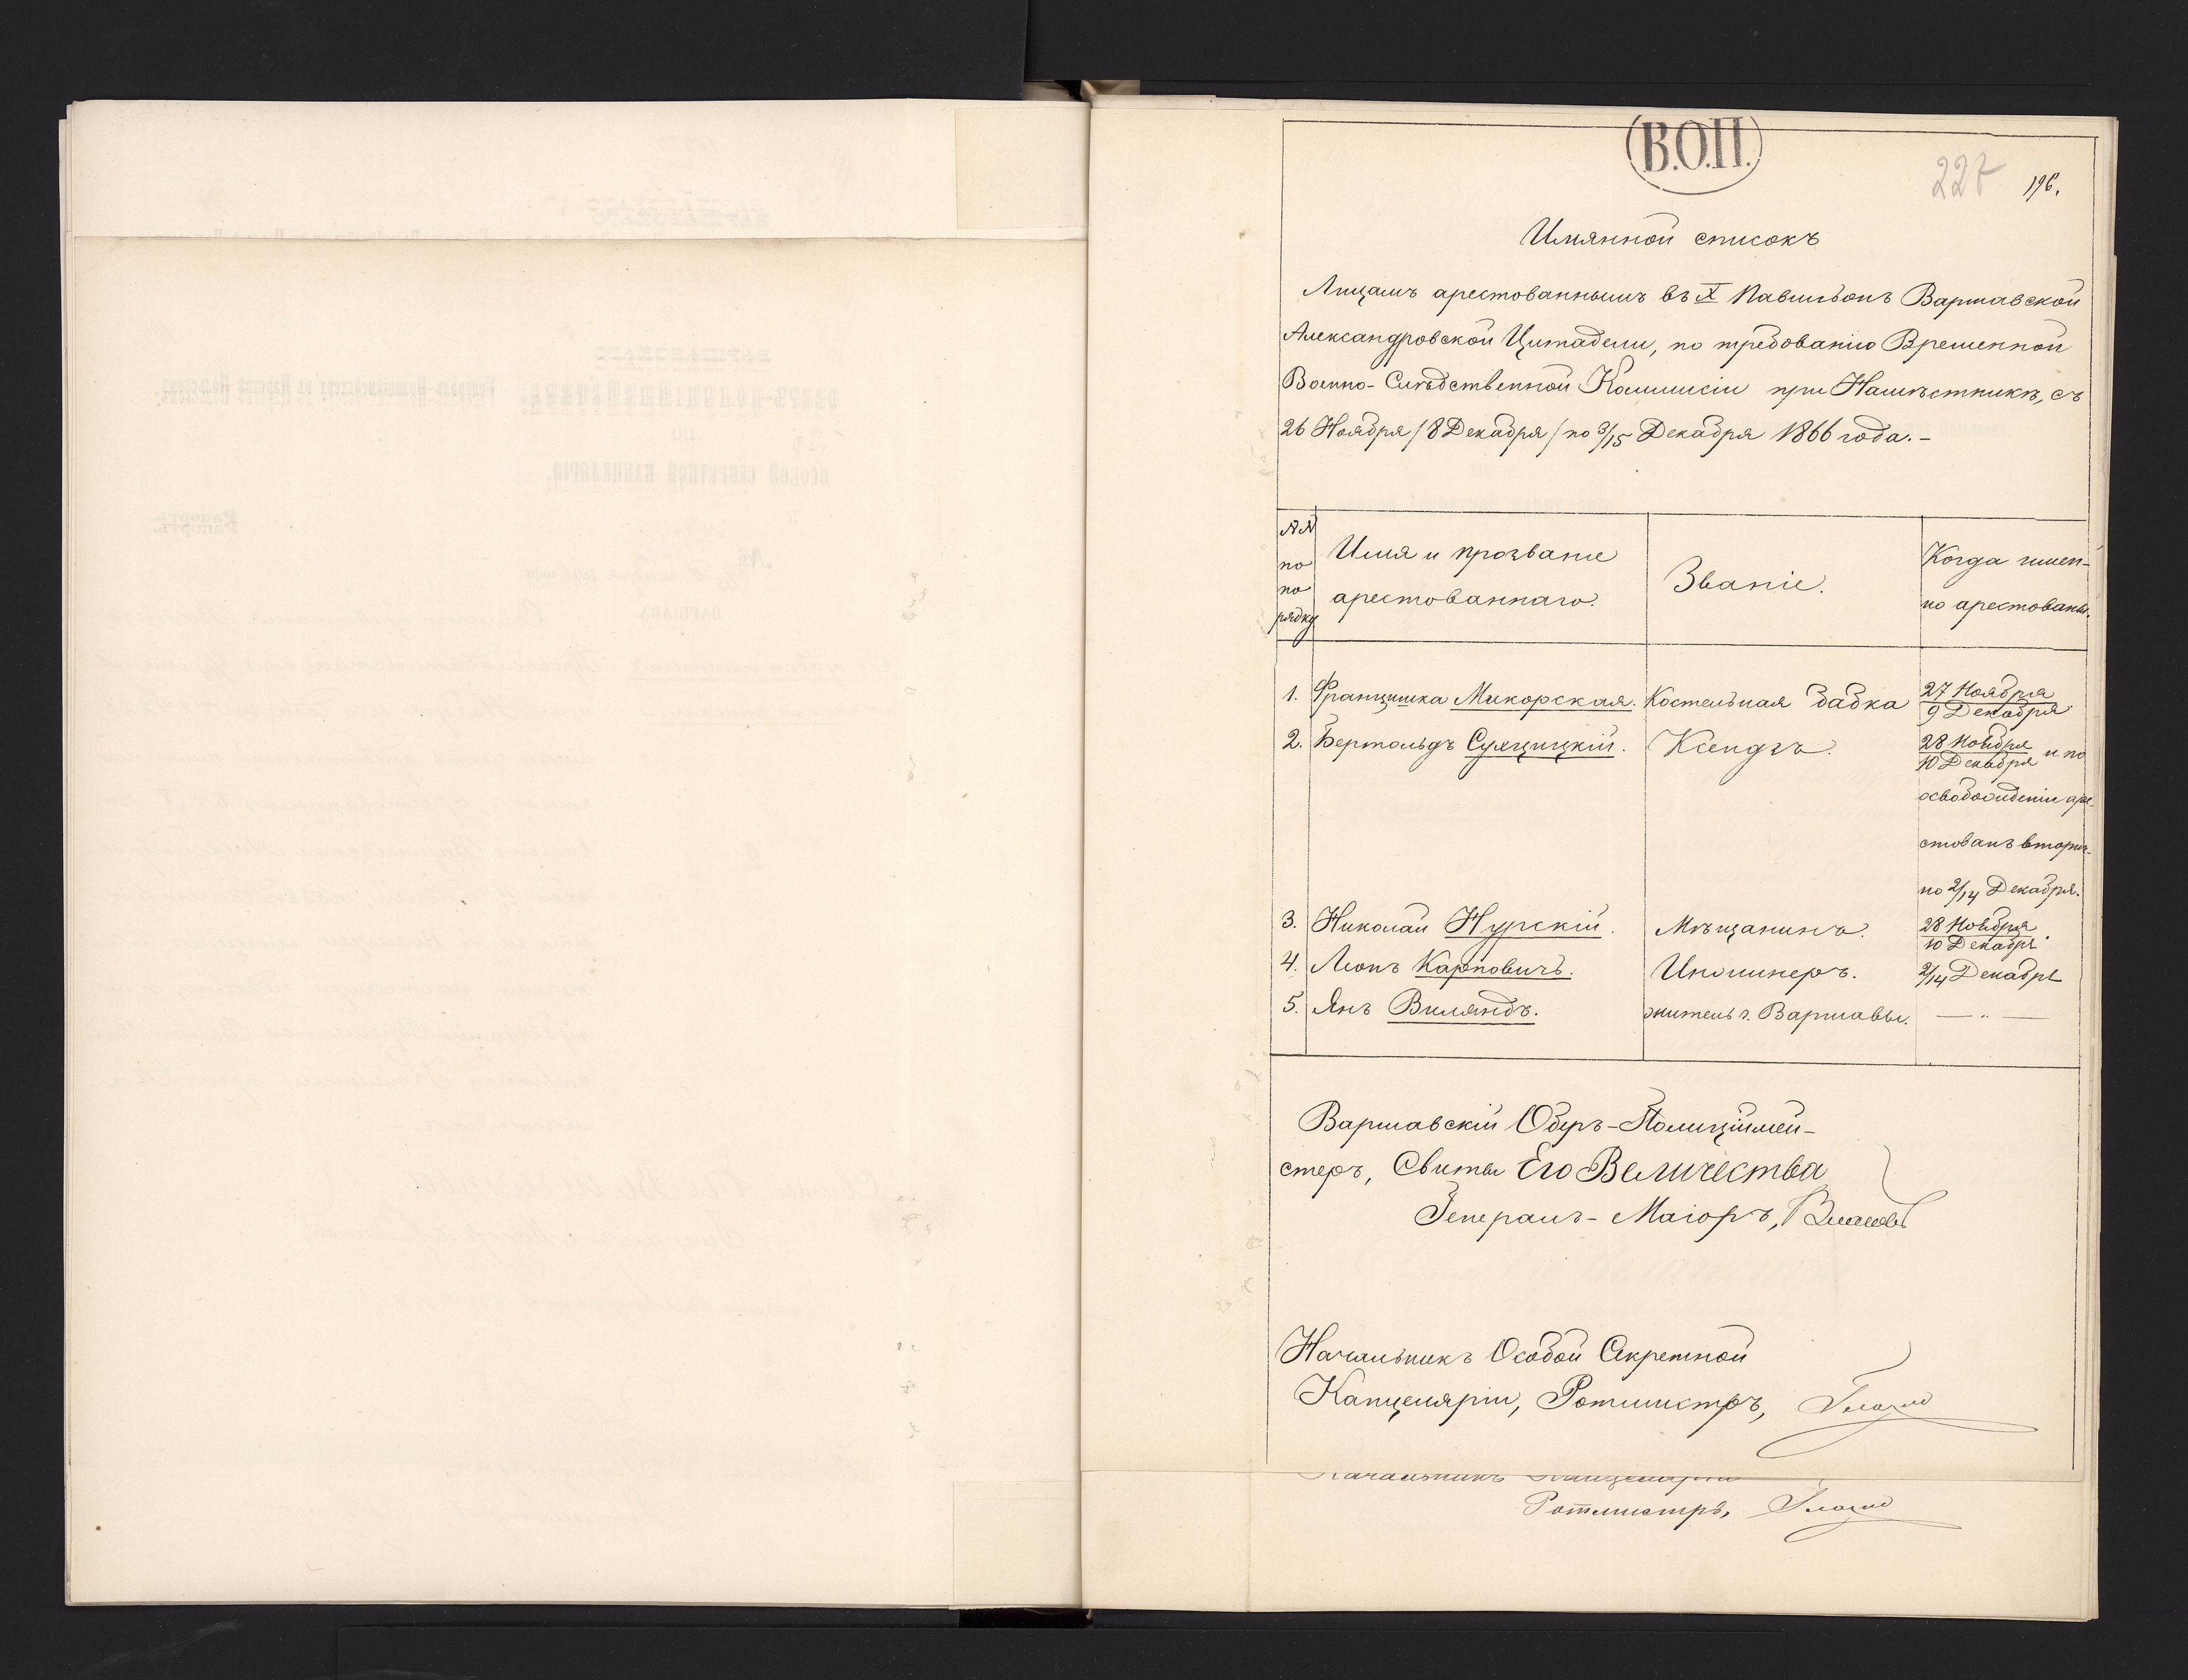 (В.О.П.)
227 196.
Имянной списокъ
Лицамъ арестованнымъ въ X Павильонъ Варшавской
Александровской Цитадели, по требованію Временной
Военно-Слѣдственной Коммисіи при Намѣстникѣ, съ
26 Ноября /8 Декабря/ по 3/15 Декабря 1866 года.-
№№ по порядку
Имя и прозваніе арестованнаго.
Званіе.
Когда имен-
но арестованы.
1. Францишка Микорская. Костельная бабка 27 Ноября
9 Декабря
2. Бертольдъ Ксендзъ. 28 Ноября
10 Декабря и по
освобожденіи аре-
стованъ вторич-
но 2/14 Декабря.
3. Николай Нурскій. Мѣщанинъ. 28 Ноября
10 Декабря.
4. Леонъ Карповичъ. Инженеръ. 2/14 Декабря
5. Янъ Виляндъ. житель г. Варшавы. — " —
Варшавскій Оберъ-Полиціймей-
стеръ, Свиты Его Величества
Генералъ-Маіоръ,
Начальникъ Особой Секретной
Канцеляріи, Ротмистръ,
Начальникъ Канцеляріи
Ротмистръ,